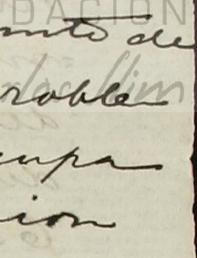 DACION
mto de
roble
upa
ion